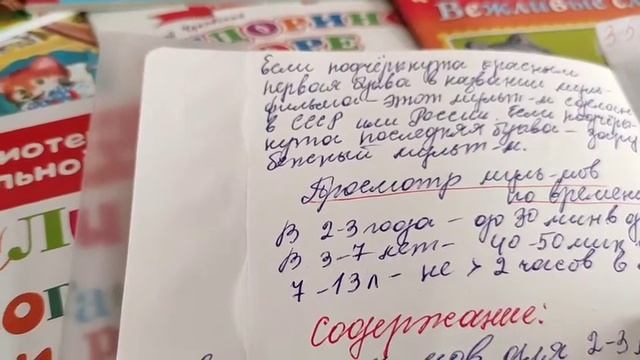 Вежливые с
иотe
льной
Если подчёркнута красным
первая буква в названии муль-
фильма - этот мульт-м сделан
в СССР или России. Если подчёрк-
нута последняя буква - зару
бежный мульт-м.
Просмотр муль-мов
по времени
В 2-3 года - до 30 мин в д
В 3-7 лет - 40-50 мин
7-13 л - не > 2 часов в
Содержание:
мов для 2-3